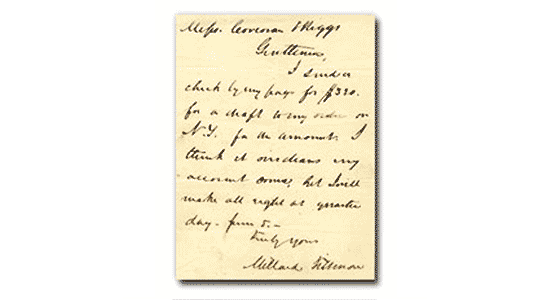 Messrs. Corcoran & Riggs
Gentlemen,
I send a
check by my page for $330.
for a draft to my order on
N.Y. for the amount. I
think it overdraws my
account some, but I will
make all right at quarter
day.
truly yours
Millard Fillmore